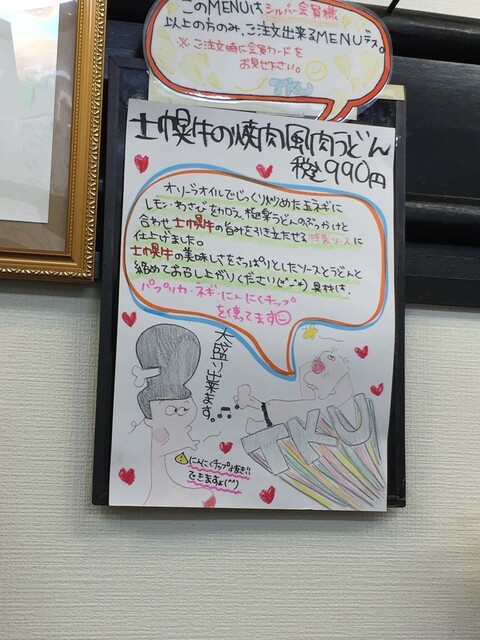 このMENUはシルバー会員様
以上の方のみ、ご注文出来るMENUデス。
※ご注文時に会員カードを
お見せ下さい。
TKU
士幌牛の焼肉風肉うどん
税込990円
オリーブオイルでじっくり炒めた玉ネギに
レモン・わさびを加え。極楽うどんのぶっかけと
合わせ士幌牛の旨みを引き立たせる特製ソースに
仕上げました。
士幌牛の美味しさをさっぱりとしたソースとうどんと
絡めてお召し上がりください(*^-^*) 具材は、
パプリカ・ネギ・にんにくチップ
を使ってます
大盛り出来ます。
TKU
にんにくチップ抜き!!
できますょ(^^)